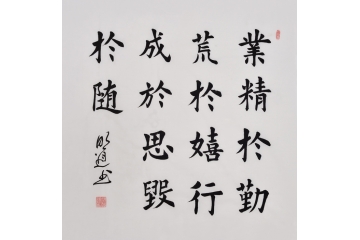 業精於勤
荒於嬉行
成於思毀
於随